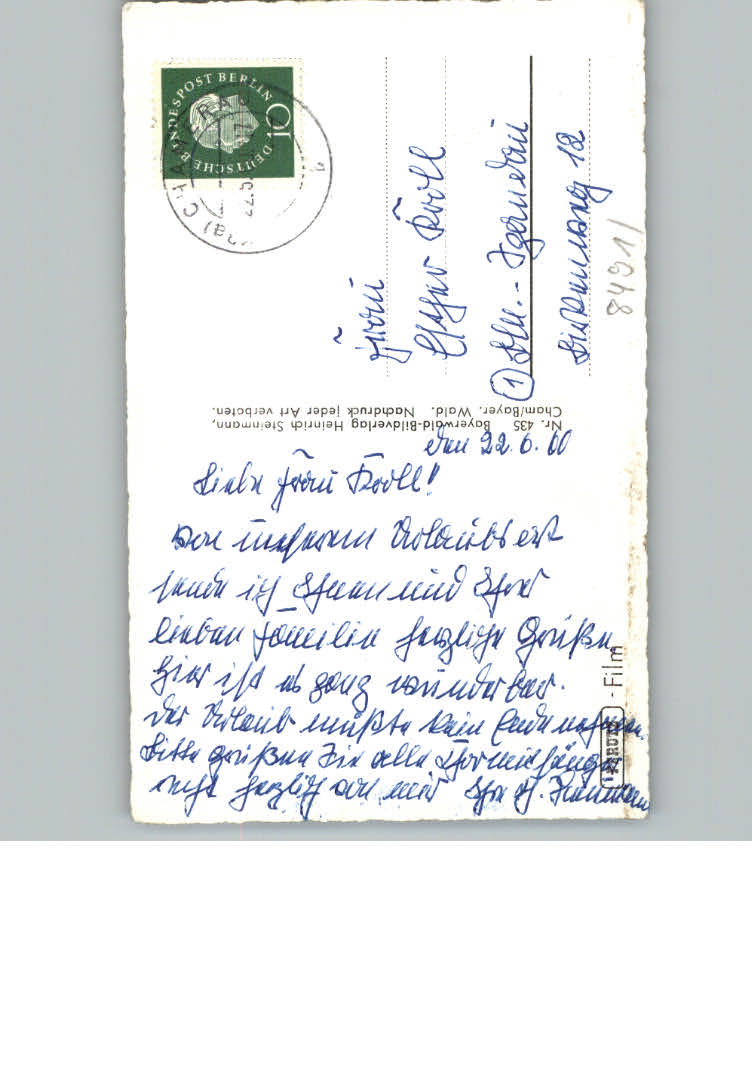 DEUTSCHE BUNDESPOST BERLIN
10
CHAMERAU
22.6.
Frau
Esther Kroll
1 Bln.-
Birkenweg 12
8491/
Nr. 435 Bayerwald-Bildverlag Heinrich Steinmann,
Cham/Bayer. Wald. Nachdruck jeder Art verboten.
den 22.6.60
Liebe Frau Kroll!
Von unserem Urlaubsort
sende ich Ihnen und Ihrer
lieben Familie herzliche Grüße
hier ist es ganz wunderbar.
Der Urlaub müßte kein Ende nehmen.
Bitte grüßen Sie alle
recht herzlich von mir Ihre H.
PERUTZ-Film